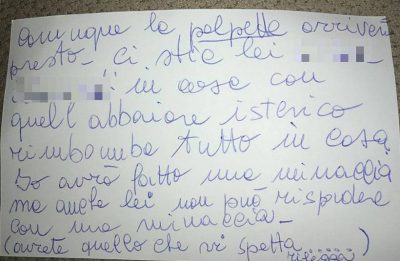 comunque la polpetta arriverà
presto - ci stia lei
in casa con
quell'abbaiare isterico
rimbomba tutto in casa
Io avrò fatto una minaccia
ma anche lei non può rispondere
con una minaccia -
(avrete quello che vi spetta